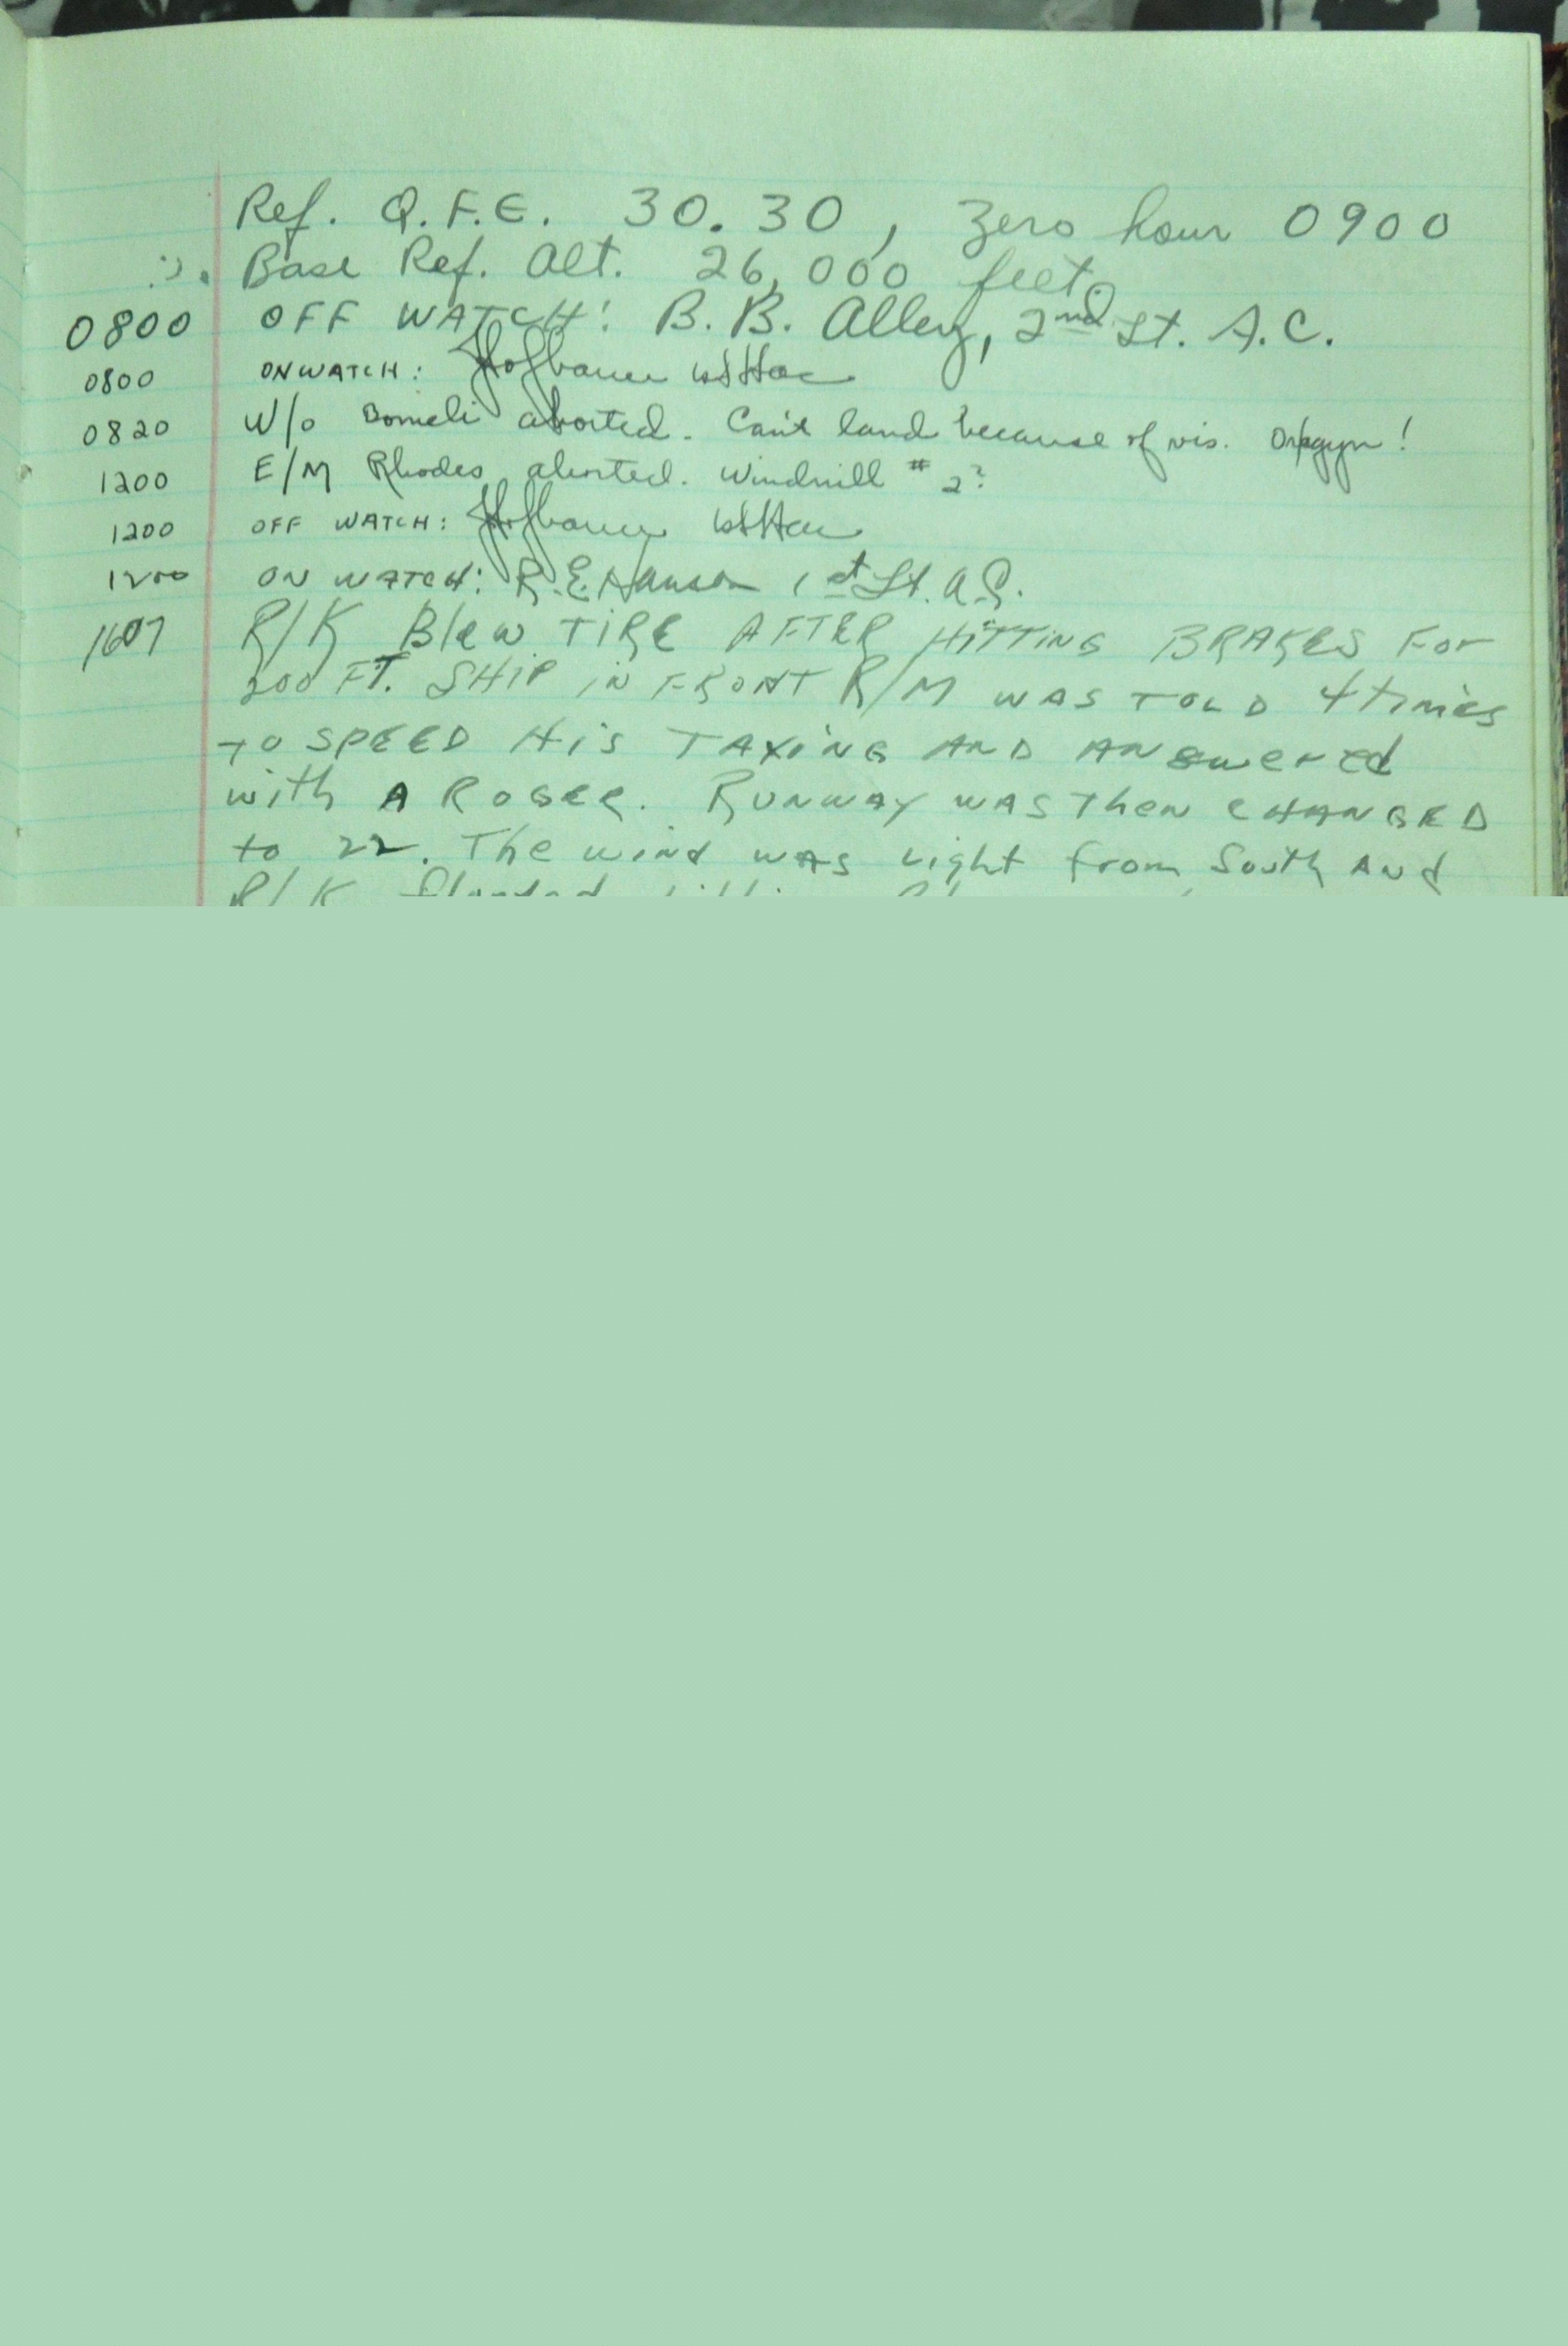 Ref. Q.F.E. 30.30, Zero hour 0900
Base Ref. Alt. 26,000 feet
0800 OFF WATCH: B. B. Alley, 2nd Lt. A.C.
0800 ON WATCH: Hofbauer 1st Lt ac
0820 W/O Bomeli aborted. Can't land because of vis. Oxygyn!
1200 E/M Rhodes aborted. Windmill # 2?
1200 OFF WATCH: Hofbauer 1st Lt ac
1200 ON WATCH: R.E. Hanson 1st Lt. A.C.
1607 R/K Blew TIRE AFTER HITTING BRAKES For
200 FT. SHIP IN FRONT R/M WAS TOLD 4 times
TO SPEED HIS TAXING AND ANswered
with A ROGER. RUNWAY WAS Then CHANGED
to 22. The wind was Light from South And
R/K